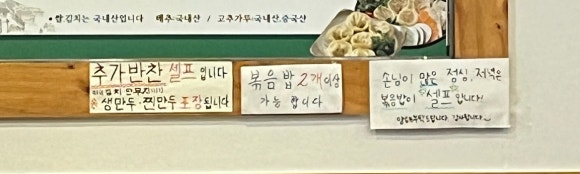 • 쌀,김치는 국내산입니다   배추(국내산 / 고추가루(국내산,중국산
추가반찬 셀프입니다
생만두·찐만두 포장됩니다
볶음밥 2개이상
가능 합니다
손님이 많은 점심, 저녁은
볶음밥이 셀프입니다!
감사합니다